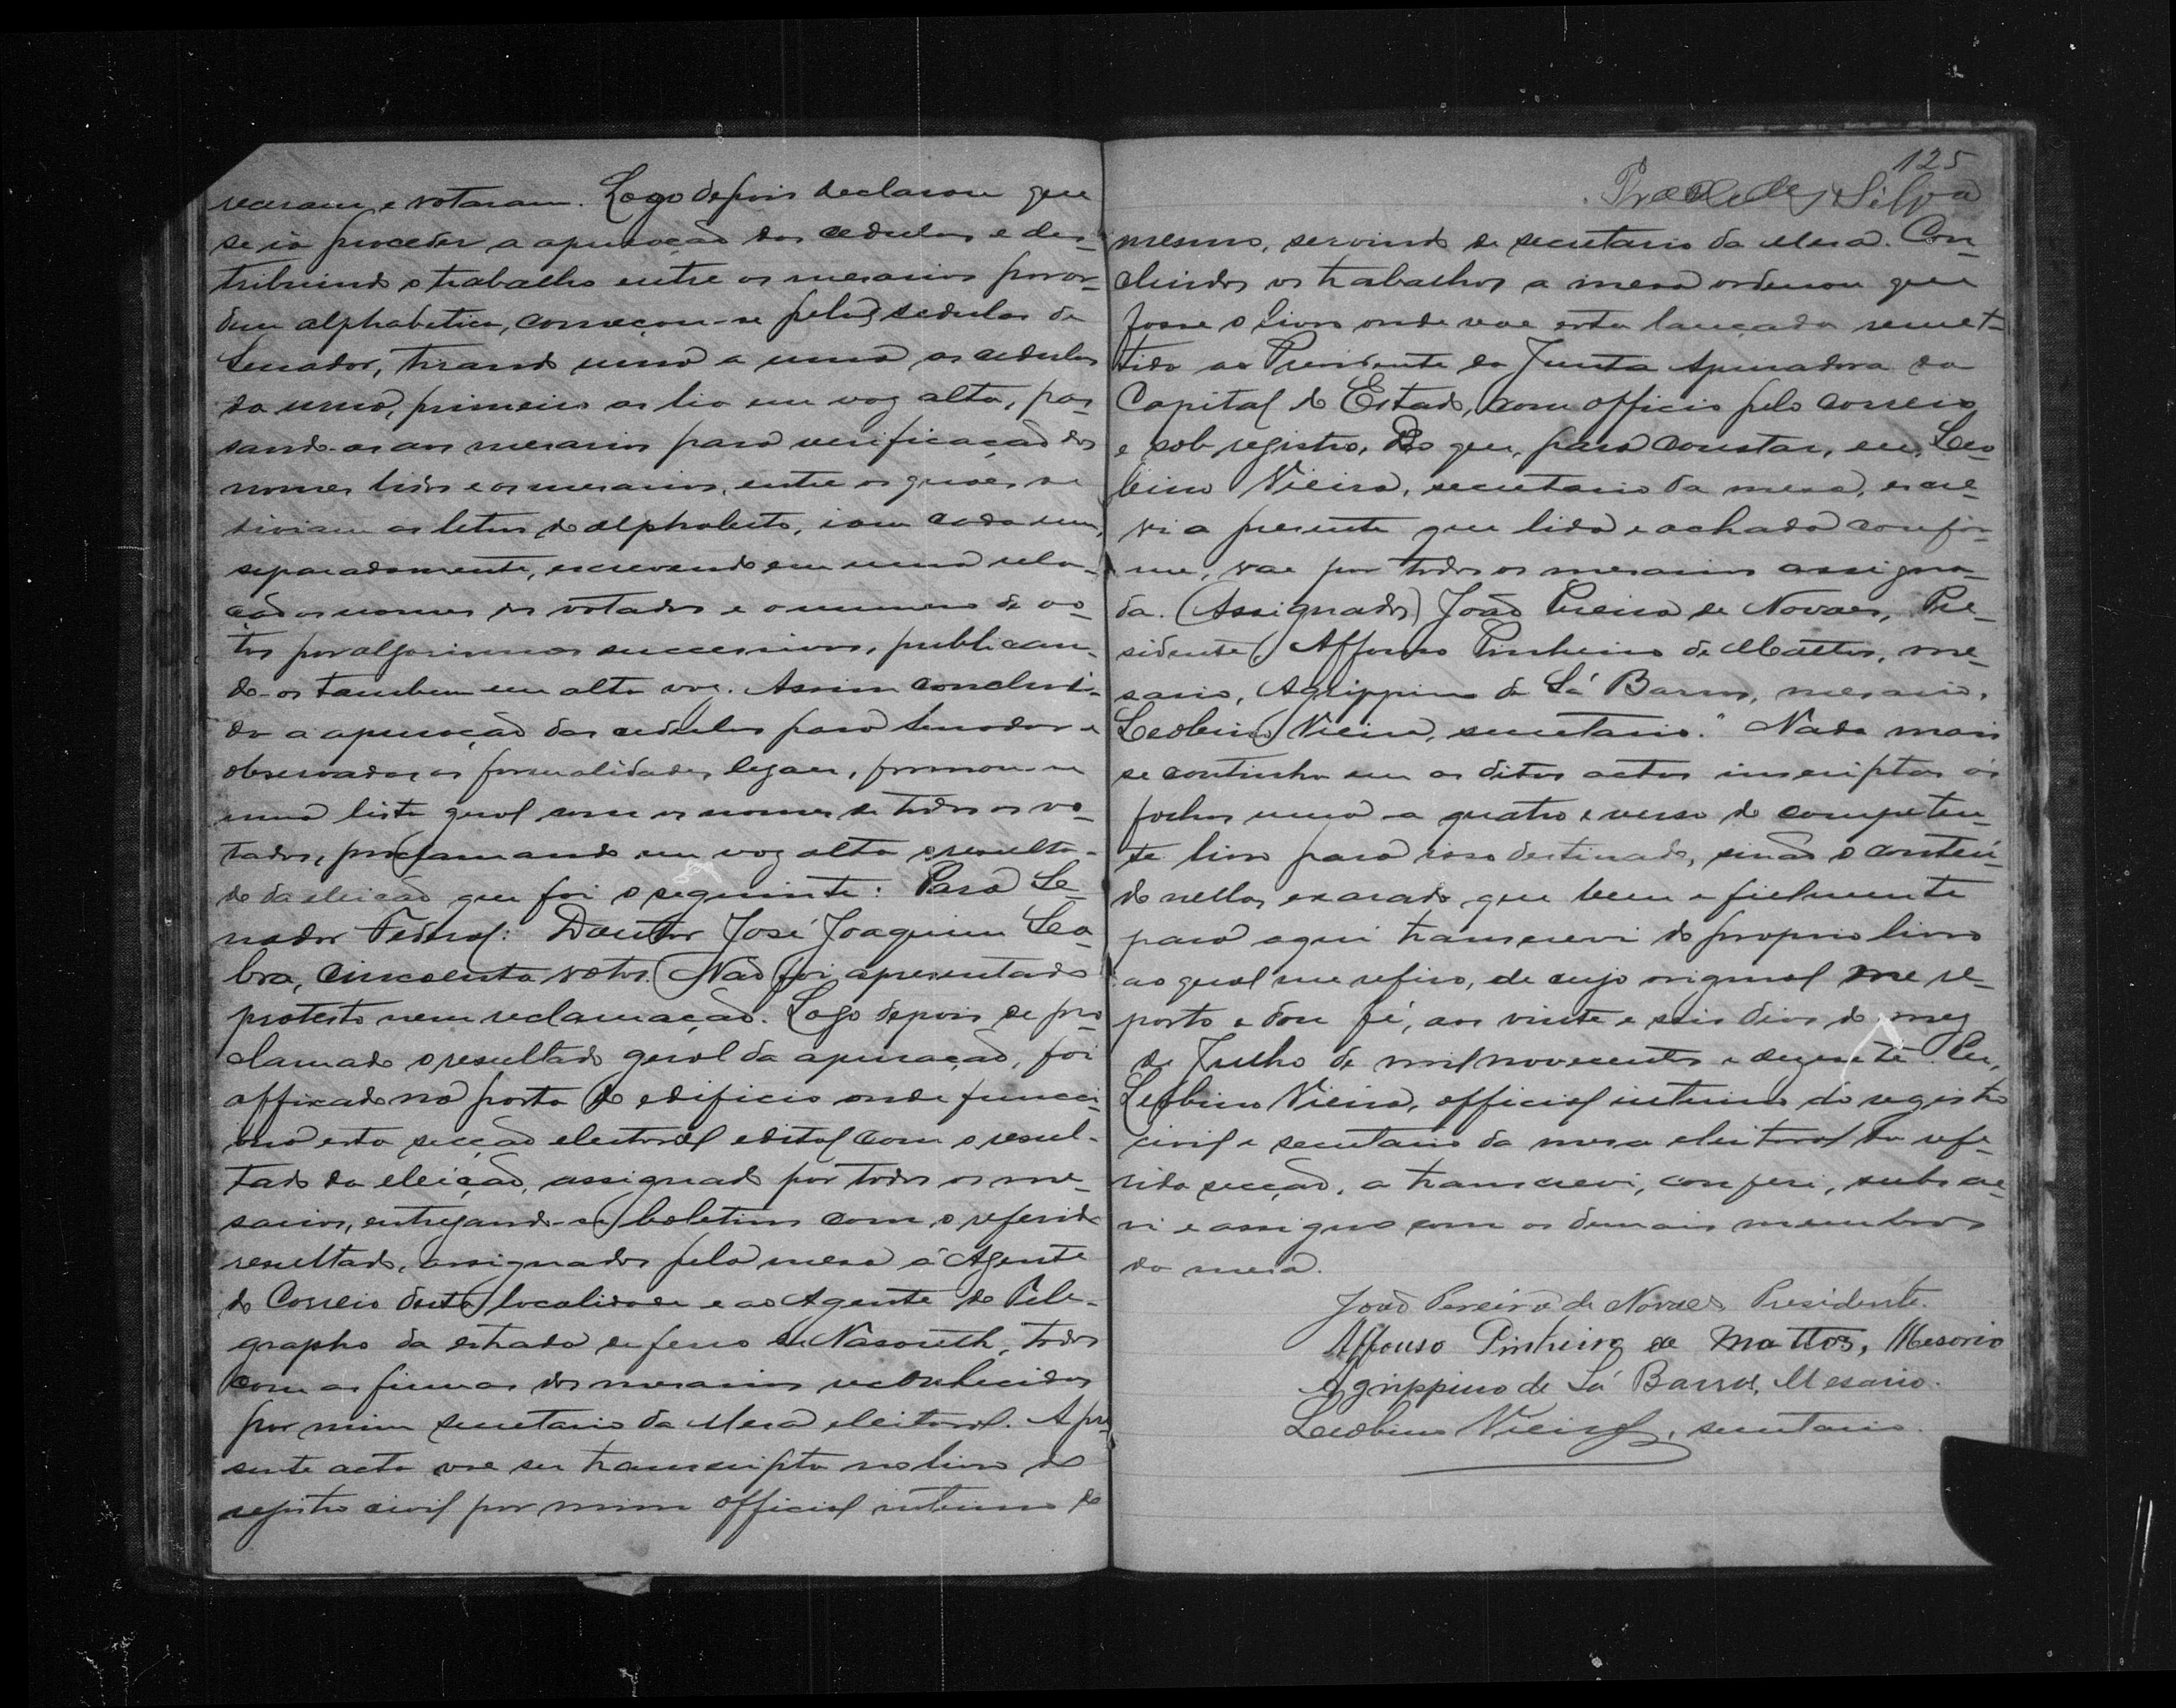 receram e votaram. Logo depois declarou que
se ia proceder a apuração das cedulas e des-
tribuindo o trabalho entre os mesarios por or-
dem alphabetica, começou-se pelas sedulas de
Senador, tirando uma a uma as cedulas
da urna, primeiro as lia em voz alta, pas-
sando-as aos mesarios para verificação dos
nomes lidos e os mesarios, entre os quaes se
diviam as letras do alphabeto, iam cada um,
separadamente, escrevendo em uma rela-
ção os nomes dos votados e o numero de vo-
tos por algarismos successivos, publican-
do-os tambem em alta voz. Assim conclui-
da a apuração das cedulas para Senador e
observadas as formalidades legaes, formou-se
uma lista geral com os nomes de todos os vo-
tados, proclamando em voz alta o resulta-
do da eleição que foi o seguinte: Para Se-
nador Federal: Doutor José Joaquim Sea-
bra, cincoenta votos. Não foi apresentado
protesto nem reclamação. Logo depois de pro-
clamado o resultado geral da apuração, foi
affixado na porta do edificio onde funcci-
ona esta secção eleitoral edital com o resul-
tado da eleição, assignado por todos os me-
sarios, entregando-se boletins com o referido
resultado, assignados pela mesa á Agente
do Correio desta localidade e ao Agente do Tele-
grapho da estrada de ferro de Nazareth, todos
com as firmas dos mesarios reconhecidas
por mim secretario da Mesa eleitoral. A pre-
sente acta vae ser transcripta no livro do
registro civil por mim official interino do
125
Silva
mesmo, servindo de secretario da Mesa. Con-
cluidos os trabalhos a mesa ordenou que
fosse o livro onde vae esta lançada remet-
tido ao Presidente da Junta Apuradora da
Capital do Estado, com officio pelo correio
e sob registro. Do que, para constar, eu, Leo-
bino Vieira, secretario da mesa, escre-
vi a presente que lida e achada confor-
me, vae por todos os mesarios assigna-
da. (Assignados) João Pereira de Novaes, Pre-
sidente, Affonso Pinheiro de Mattos, me-
sario, Agrippino de Sá Barros, mesario,
Leobino Vieira, secretario." Nada mais
se continha em as ditas actas inscriptas ás
folhas uma a quatro e verso do competen-
te livro para isso destinado, sinão o conteú-
do nellas exarado que bem e fielmente
para aqui transcrevi do proprio livro
ao qual me refiro, de cujo original me re-
porto e dou fé, aos vinte e seis dias do mez
de Julho de mil novecentos e dezesete. Eu,
Leobino Vieira, official interino do registro
civil e secretario da mesa eleitoral da refe-
rida secção, a transcrevi, conferi, subscre-
vi e assigno com os demais membros
da mesa.
João Pereira de Novaes Presidente.
Affonso Pinheiro de Mattos, Mesario
Agrippino de Sá Barros, Mesario.
Leobino Vieira, secretario.